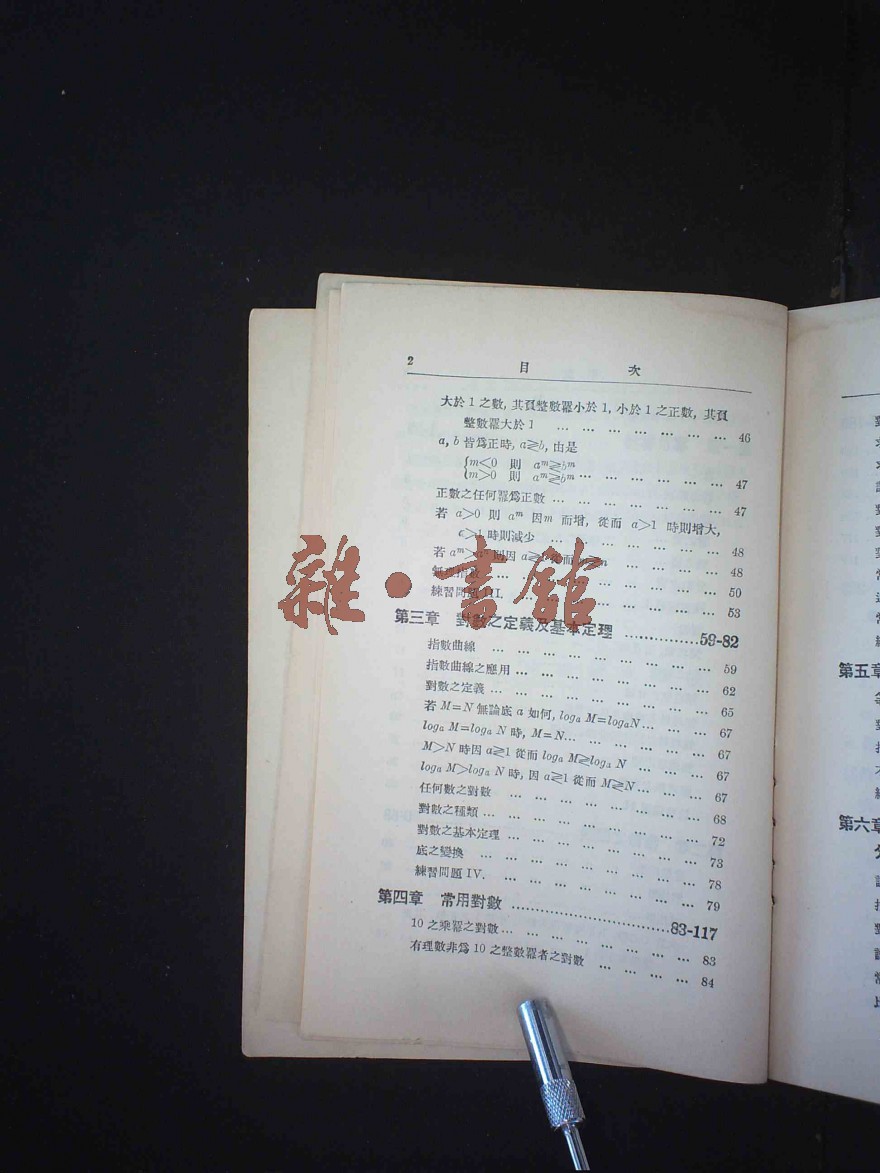 2 目 次
大於 1 之數, 其頁整數羃小於 1, 小於 1 之正數, 其頁
整數羃大於 1 … … … … … … … 46
a, b 皆爲正時, a≷b, 由是
{m<0 則 a^m≷b^m
{m>0 則 a^m≷b^m … … … … … … 47
正數之任何羃爲正數 … … … … … … … 47
若 a>0 則 a^m 因 m 而增, 從而 a>1 時則增大,
>1 時則減少 … … … … … … … 48
若 a^m 則因 a≷ 從而 … … … 48
指數 … … … … … … … 50
練習問題 III. … … … … … … 53
雜·書館
第三章 對數之定義及基本定理 ……………59-82
指數曲線 … … … … … … … … 59
指數曲線之應用 … … … … … … … 62
對數之定義 … … … … … … … 65
若 M=N 無論底 a 如何, loga M=logaN… … … … 67
loga M=loga N 時, M=N… … … … … … 67
M>N 時因 a≷1 從而 loga M≷loga N … … … 67
loga M>loga N 時, 因 a≷1 從而 M≷N… … … 67
任何數之對數 … … … … … … … 68
對數之種類 … … … … … … … … 72
對數之基本定理 … … … … … … … 73
底之變換 … … … … … … … … 78
練習問題 IV. … … … … … … … 79
第四章 常用對數 ……………………………83-117
10 之乘羃之對數… … … … … … … 83
有理數非爲 10 之整數羃者之對數 … … … … 84
第五章
第六章